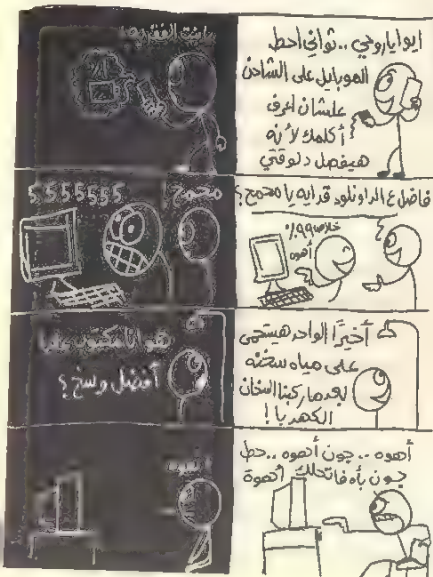 ايوا ياروحي .. ثواني احط
الموبايل على الشاحن
علشان اعرف
أكلمك لأنه
هيفصل دلوقتي
فاضل ع الداونلود قد ايه يا محمح؟
خلاص 99%
أهوه
محمح
5555555
أخيرًا الواحد هيستحمى
على مياه سخنه
بعد ما ركبنا السخان
الكهربا!
أفضل وسخ؟
أهوه .. جون أهوه .. حط
جون بأه فاتحلك أهوة